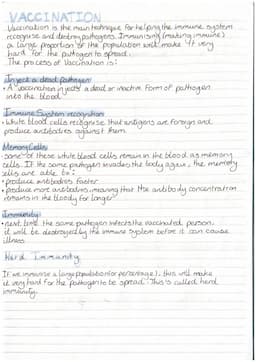 VACCINATION
Vaccination is the main technique for helping the immune system
recognise and destroy pathogens. Immunising (making immune)
a large proportion of the population will make it very
hard for the pathogen to spread.
The process of Vaccination is:
Inject a dead pathogen
• A vaccination injects a dead or inactive form of pathogen
into the blood
Immune System recognition
• White blood cells recognise that antigens are foreign and
produce antibodies against them
Memory Cells
• some of these white blood cells remain in the blood as memory
cells. If the same pathogen invades the body again, the memory
cells are able to:
• produce antibodies faster
• produce more antibodies, meaning that the antibody concentration
remains in the bloody for longer
Immunity:
• next time the same pathogen infects the vaccinated person,
it will be destroyed by the immune system before it can cause
illness
Herd Immunity
If we immunise a large population (or percentage), this will make
it very hard for the pathogen to spread. This is called herd
immunity.